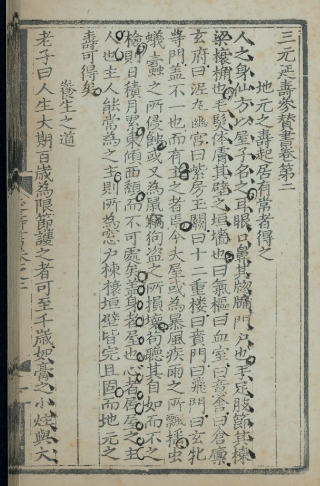 三元延壽參贊書卷第二
地元之壽起居有常者得之
人之身仙方以屋子名之耳眼口鼻其牕牖門戶也手足肢節其棟
梁榱桷也毛髮體膚其壁瓦垣墻也曰氣樞曰血室曰意舍曰倉廩
玄府曰泥丸幽宮曰紫房玉闕曰十二重樓曰賁門曰飛門曰玄牝
等門蓋不一也而有主之者焉今夫屋或為暴風疾雨之所飄搖虫
蟻蠹之所侵蝕或又為鼠竊狗盜之所損壞苟聽其自如而不之
檢則日積月累東傾西頹而不可處矣蓋身者屋也心者居屋之主
人也主人能常為之主則所為窓戶棟樑垣壁皆完且固而地元之
壽可得矣
養生之道
老子曰人生大期百歲為限節護之者可至千歲如膏之小炷與大